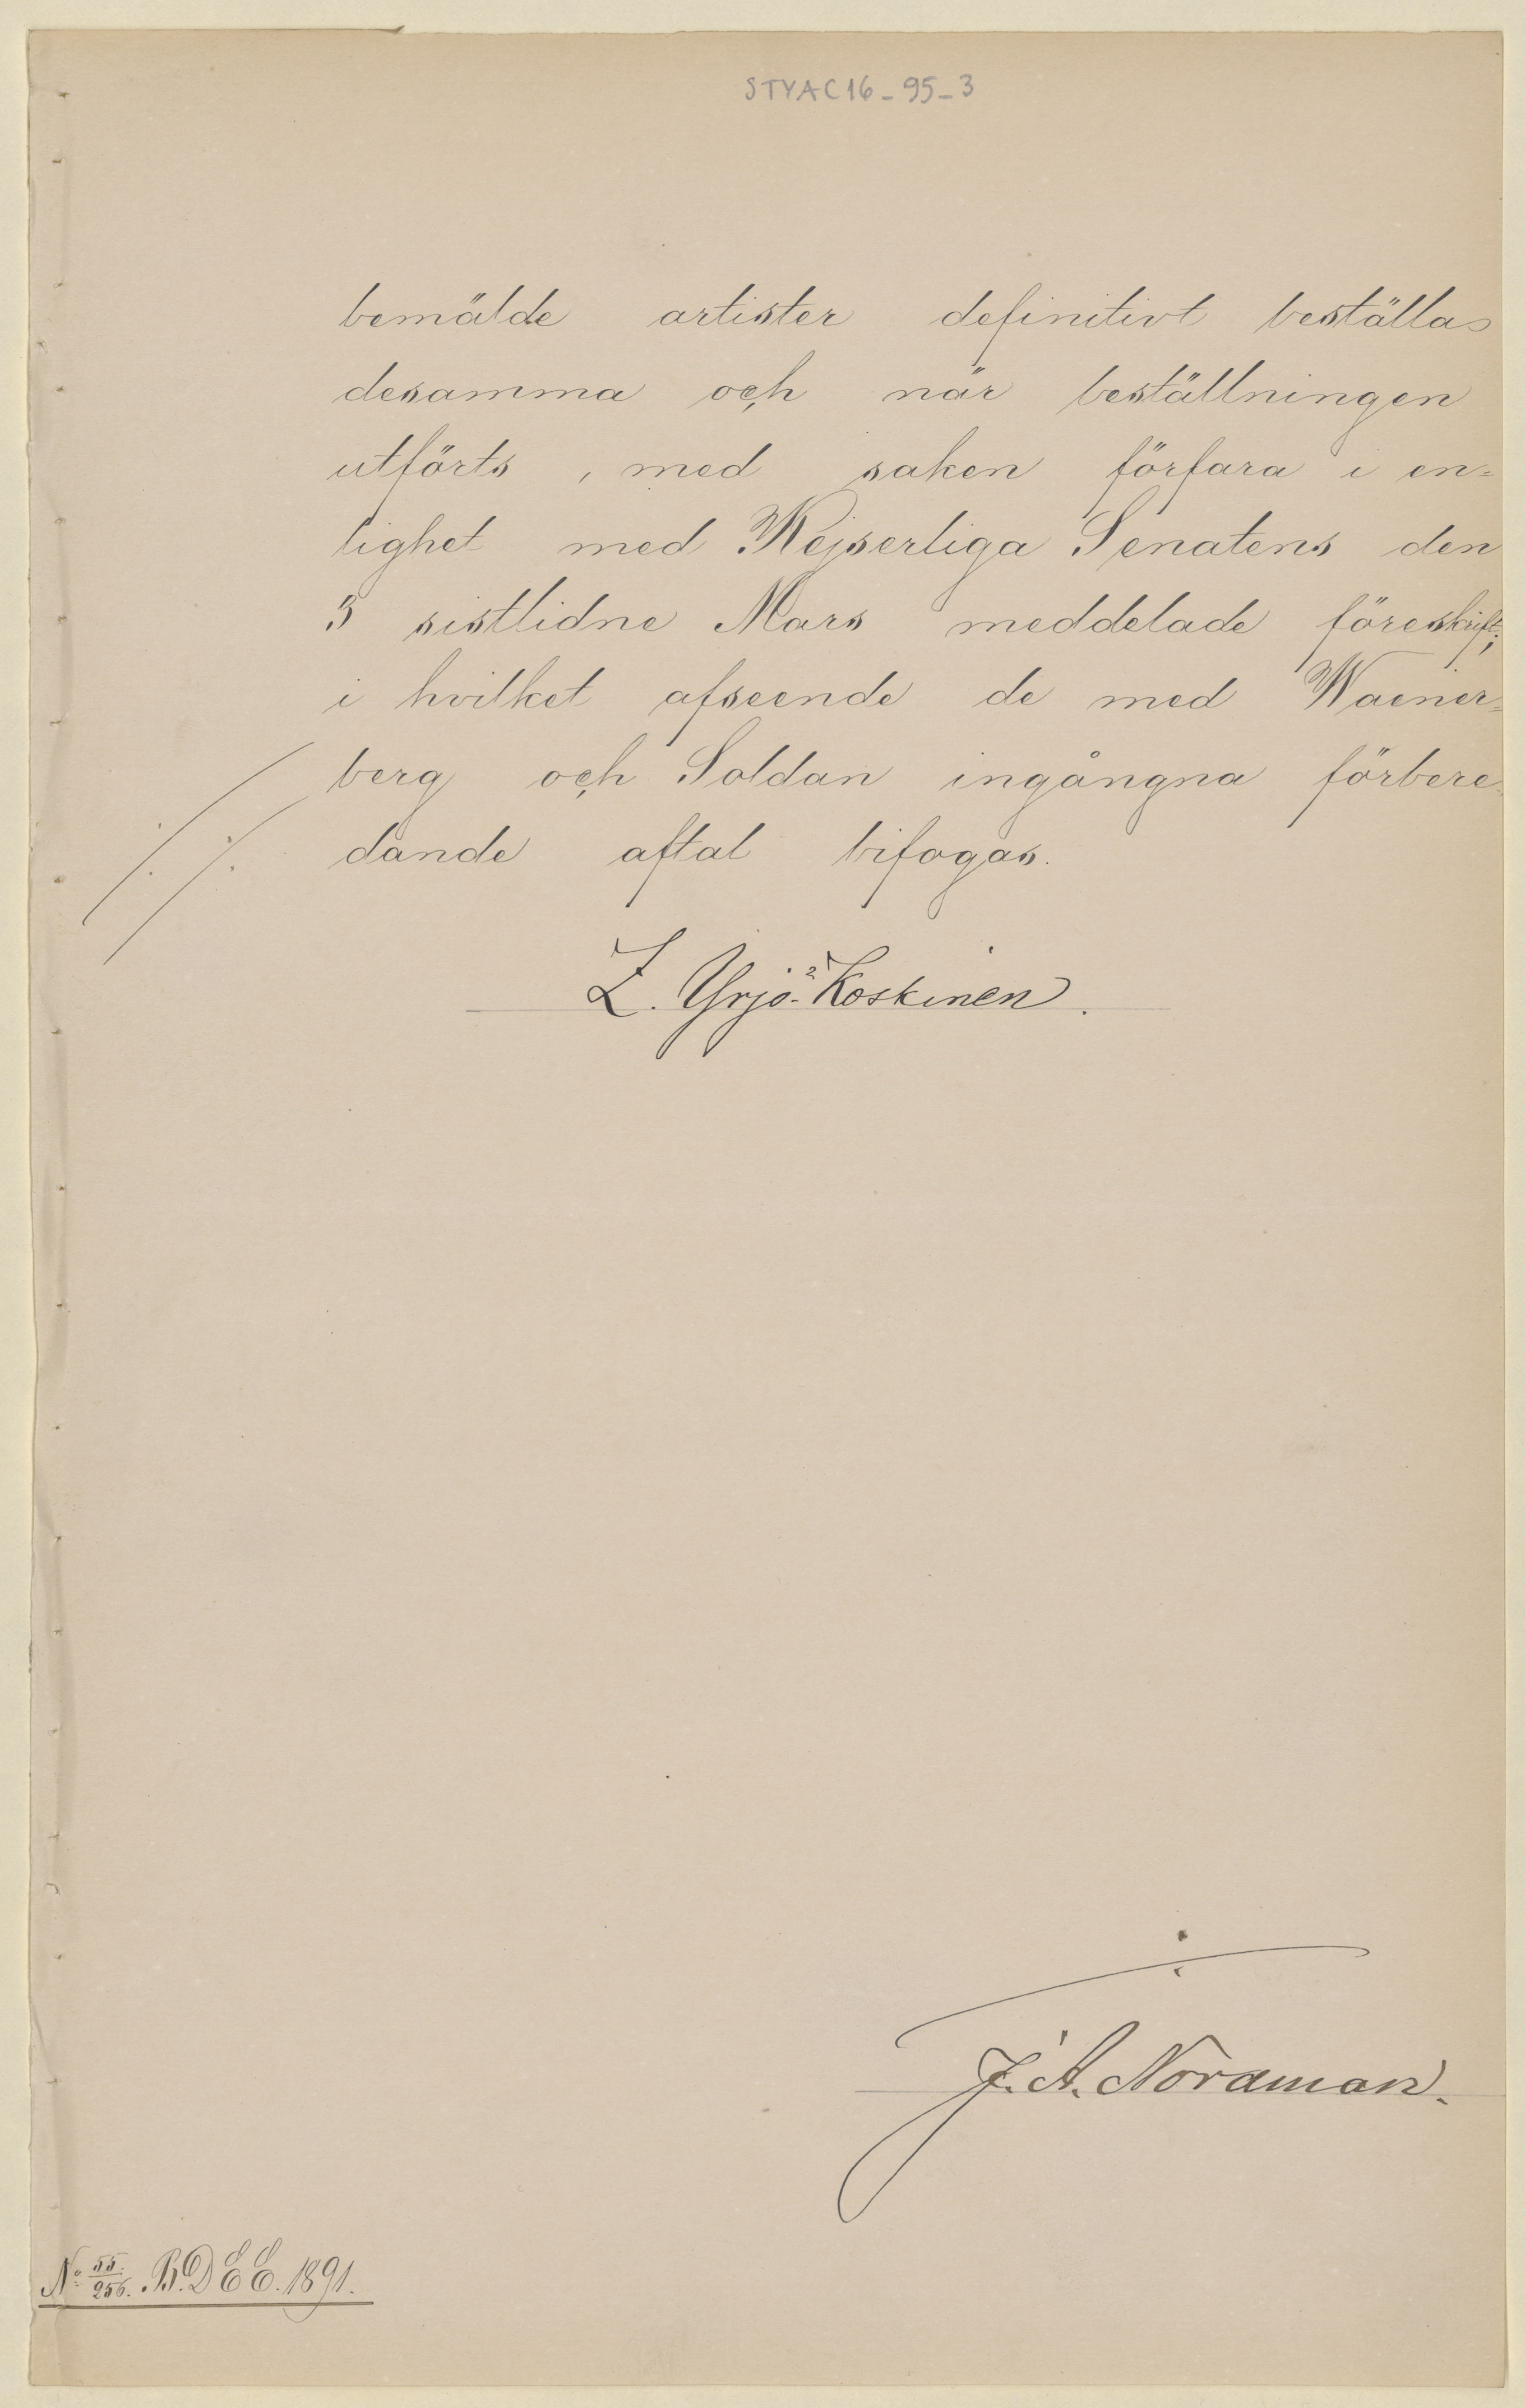 STYAC16_95_3
bemälde artister definitivt beställas
desamma och när beställningen
utförts, med saken förfara i en=
lighet med Kejserliga Senatens den
3 sistlidne Mars meddelade föreskrift;
i hvilket afseende de med Waener=
berg och Soldan ingångna förbere=
dande aftal bifogas.
Z. Yrjö-Koskinen.
J. A. Nordman.
No 55./256. B. D E E. 1891.